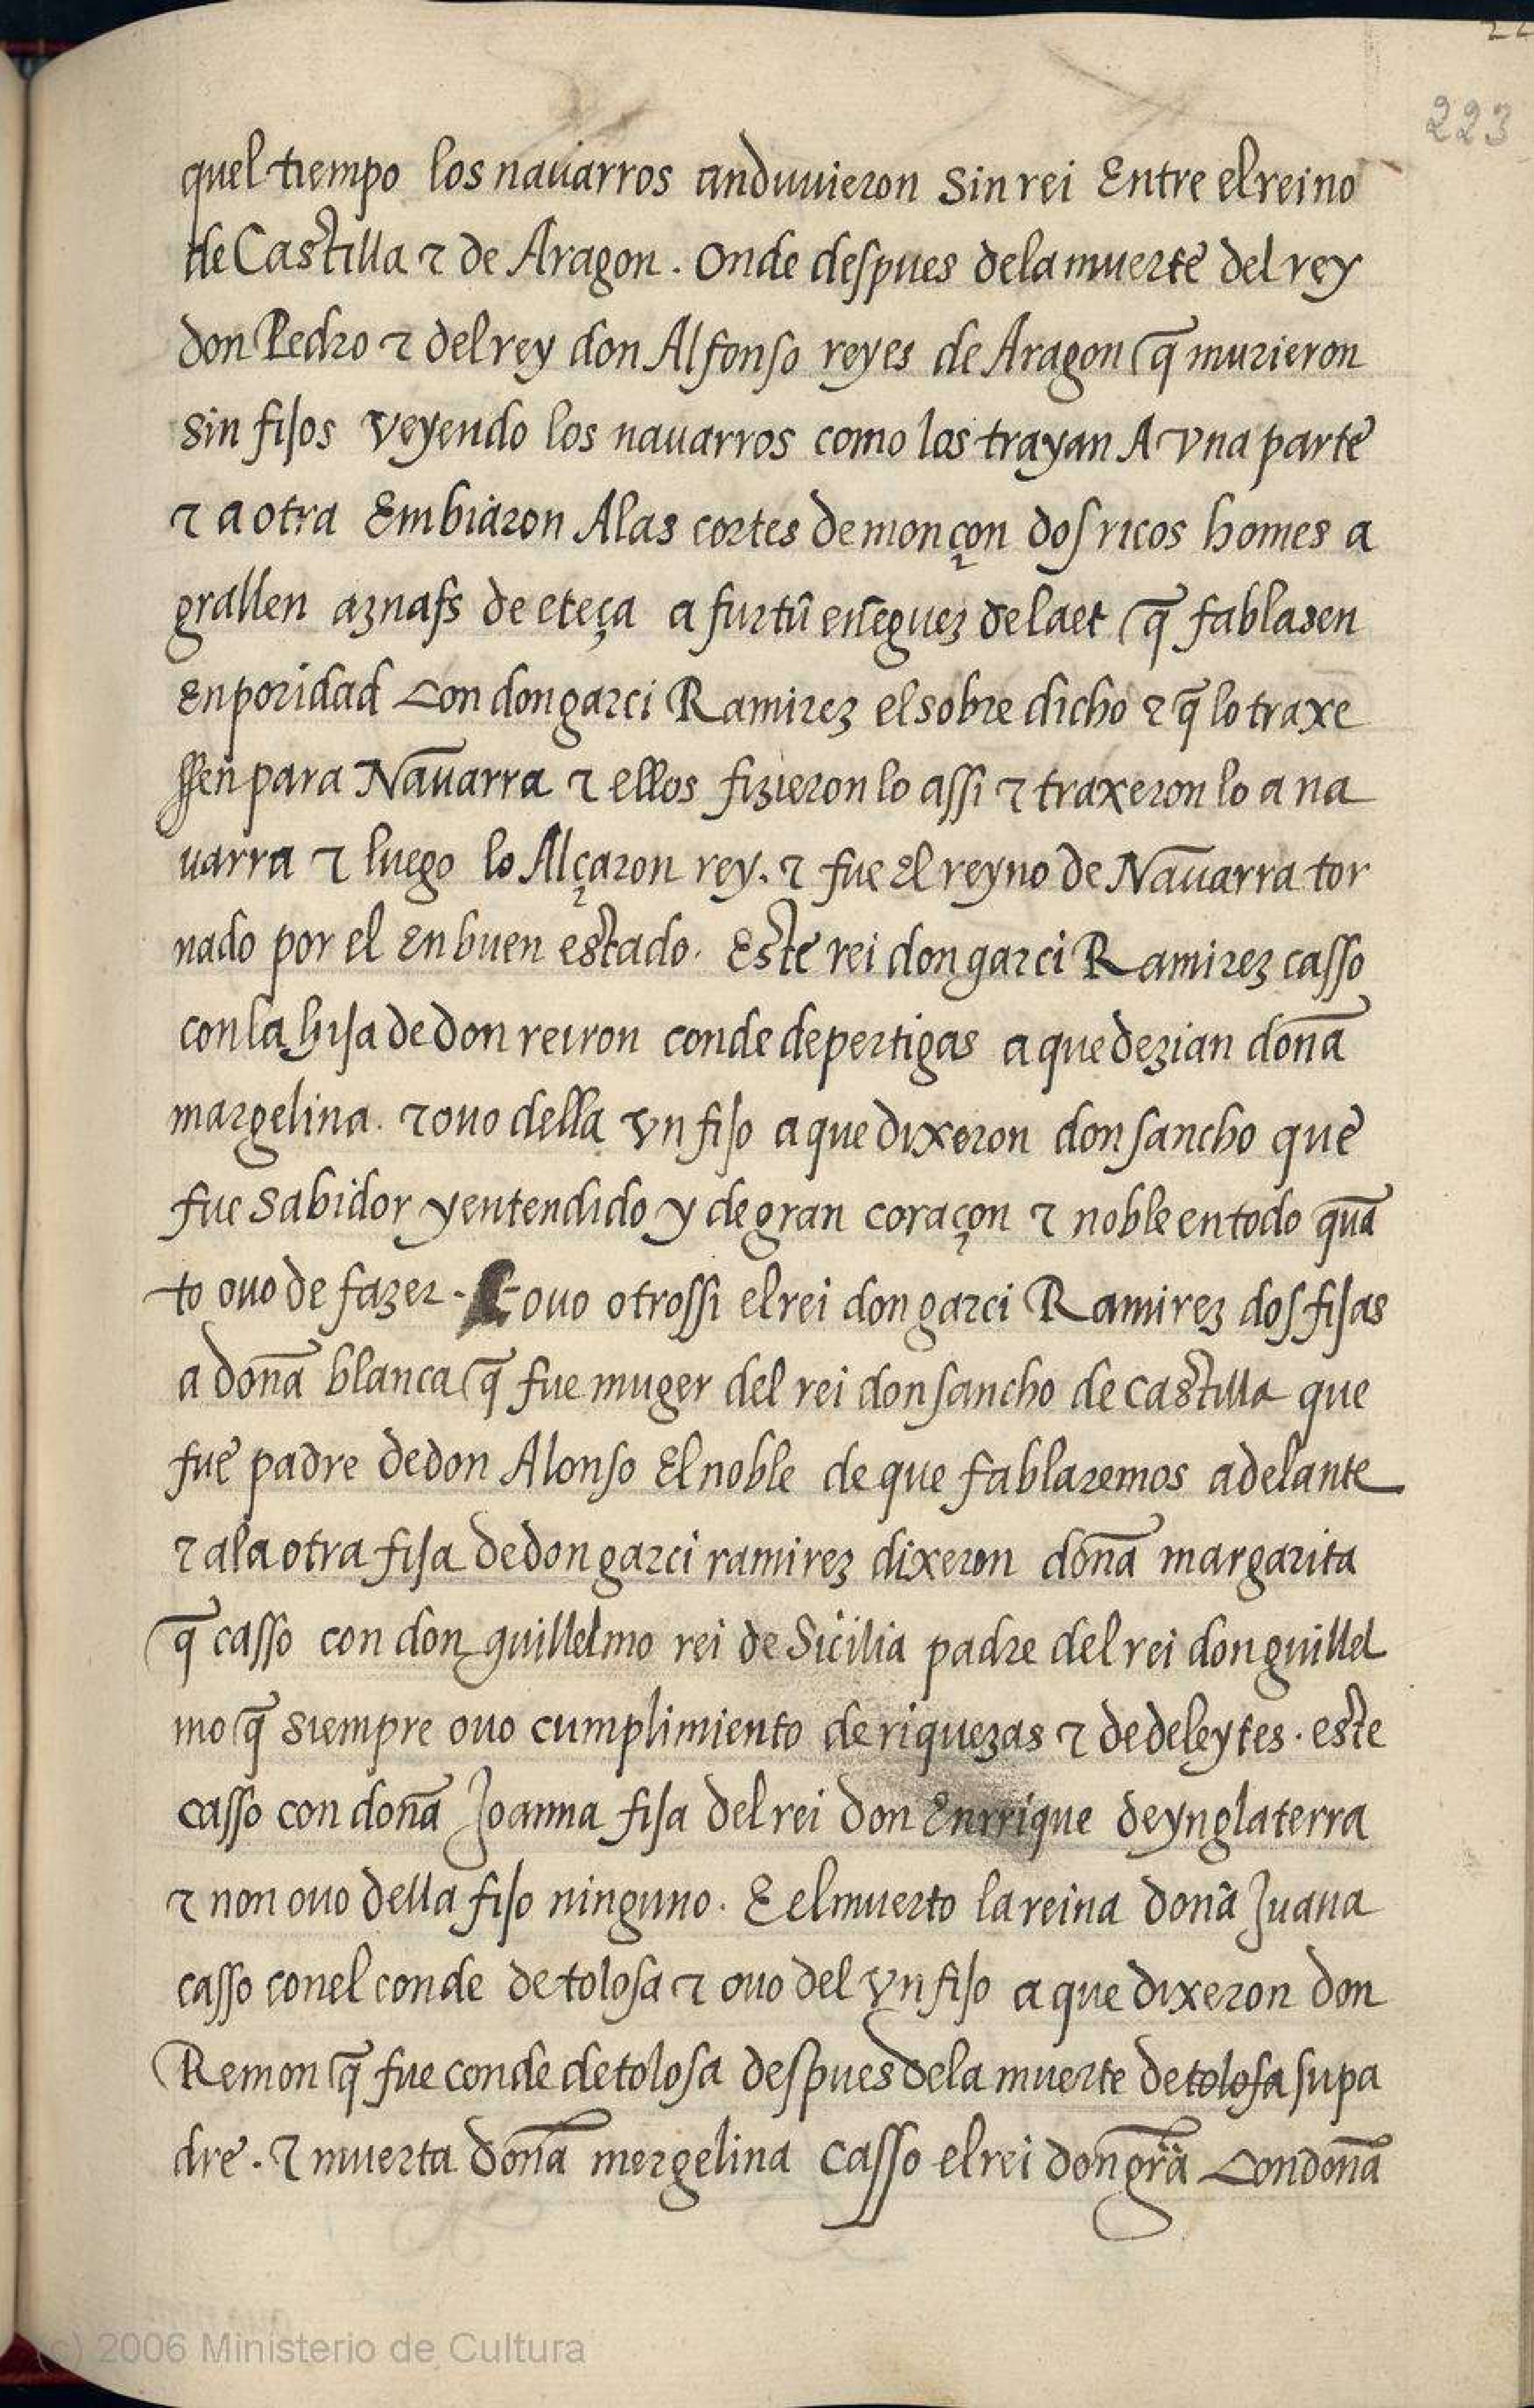 22
223
quel tiempo los nauarros anduuieron sin rei Entre el reino
de Castilla ⁊ de Aragon. Onde despues dela muerte del rey
don Pedro ⁊ del rey don Alfonso reyes de Aragon q̄ murieron
sin fijos veyendo los nauarros como los trayan A vna parte
⁊ a otra Embiaron Alas cortes de monçon dos ricos homes a
grallen aznass de eteça a furtū eñeguez de laet q̄ fablasen
en poridad con don garci Ramirez el sobre dicho ⁊ q̄ lo traxe
ssen para Nauarra ⁊ ellos fizieron lo assi ⁊ traxeron lo a na
uarra ⁊ luego lo Alçaron rey. ⁊ fue El reyno de Nauarra tor
nado por el en buen estado. Este rei don garci Ramirez casso
con la hija de don reiron conde de pertigas a que dezian doña
margelina. ⁊ ouo della vn fijo a que dixeron don sancho que
fue sabidor y entendido y de gran coraçon ⁊ noble en todo quā
to ouo de fazer. ouo otrossi el rei don garci Ramirez dos fijas
a doña blanca q̄ fue muger del rei don sancho de castilla que
fue padre de don Alonso El noble de que fablaremos adelante
⁊ ala otra fija de don garci ramirez dixeron doña margarita
q̄ casso con don guillelmo rei de Sicilia padre del rei don guillel
mo q̄ siempre ouo cumplimiento de riquezas ⁊ de deleytes. este
casso con doña Joanna fija del rei don Enrrique de ynglaterra
⁊ non ouo della fijo ninguno. E el muerto la reina doña Juana
casso con el conde de tolosa ⁊ ouo del vn fijo a que dixeron don
Remon q̄ fue conde de tolosa despues dela muerte de tolosa su pa
dre. ⁊ muerta doña mergelina casso el rei don gr̄a con doña
(c) 2006 Ministerio de Cultura